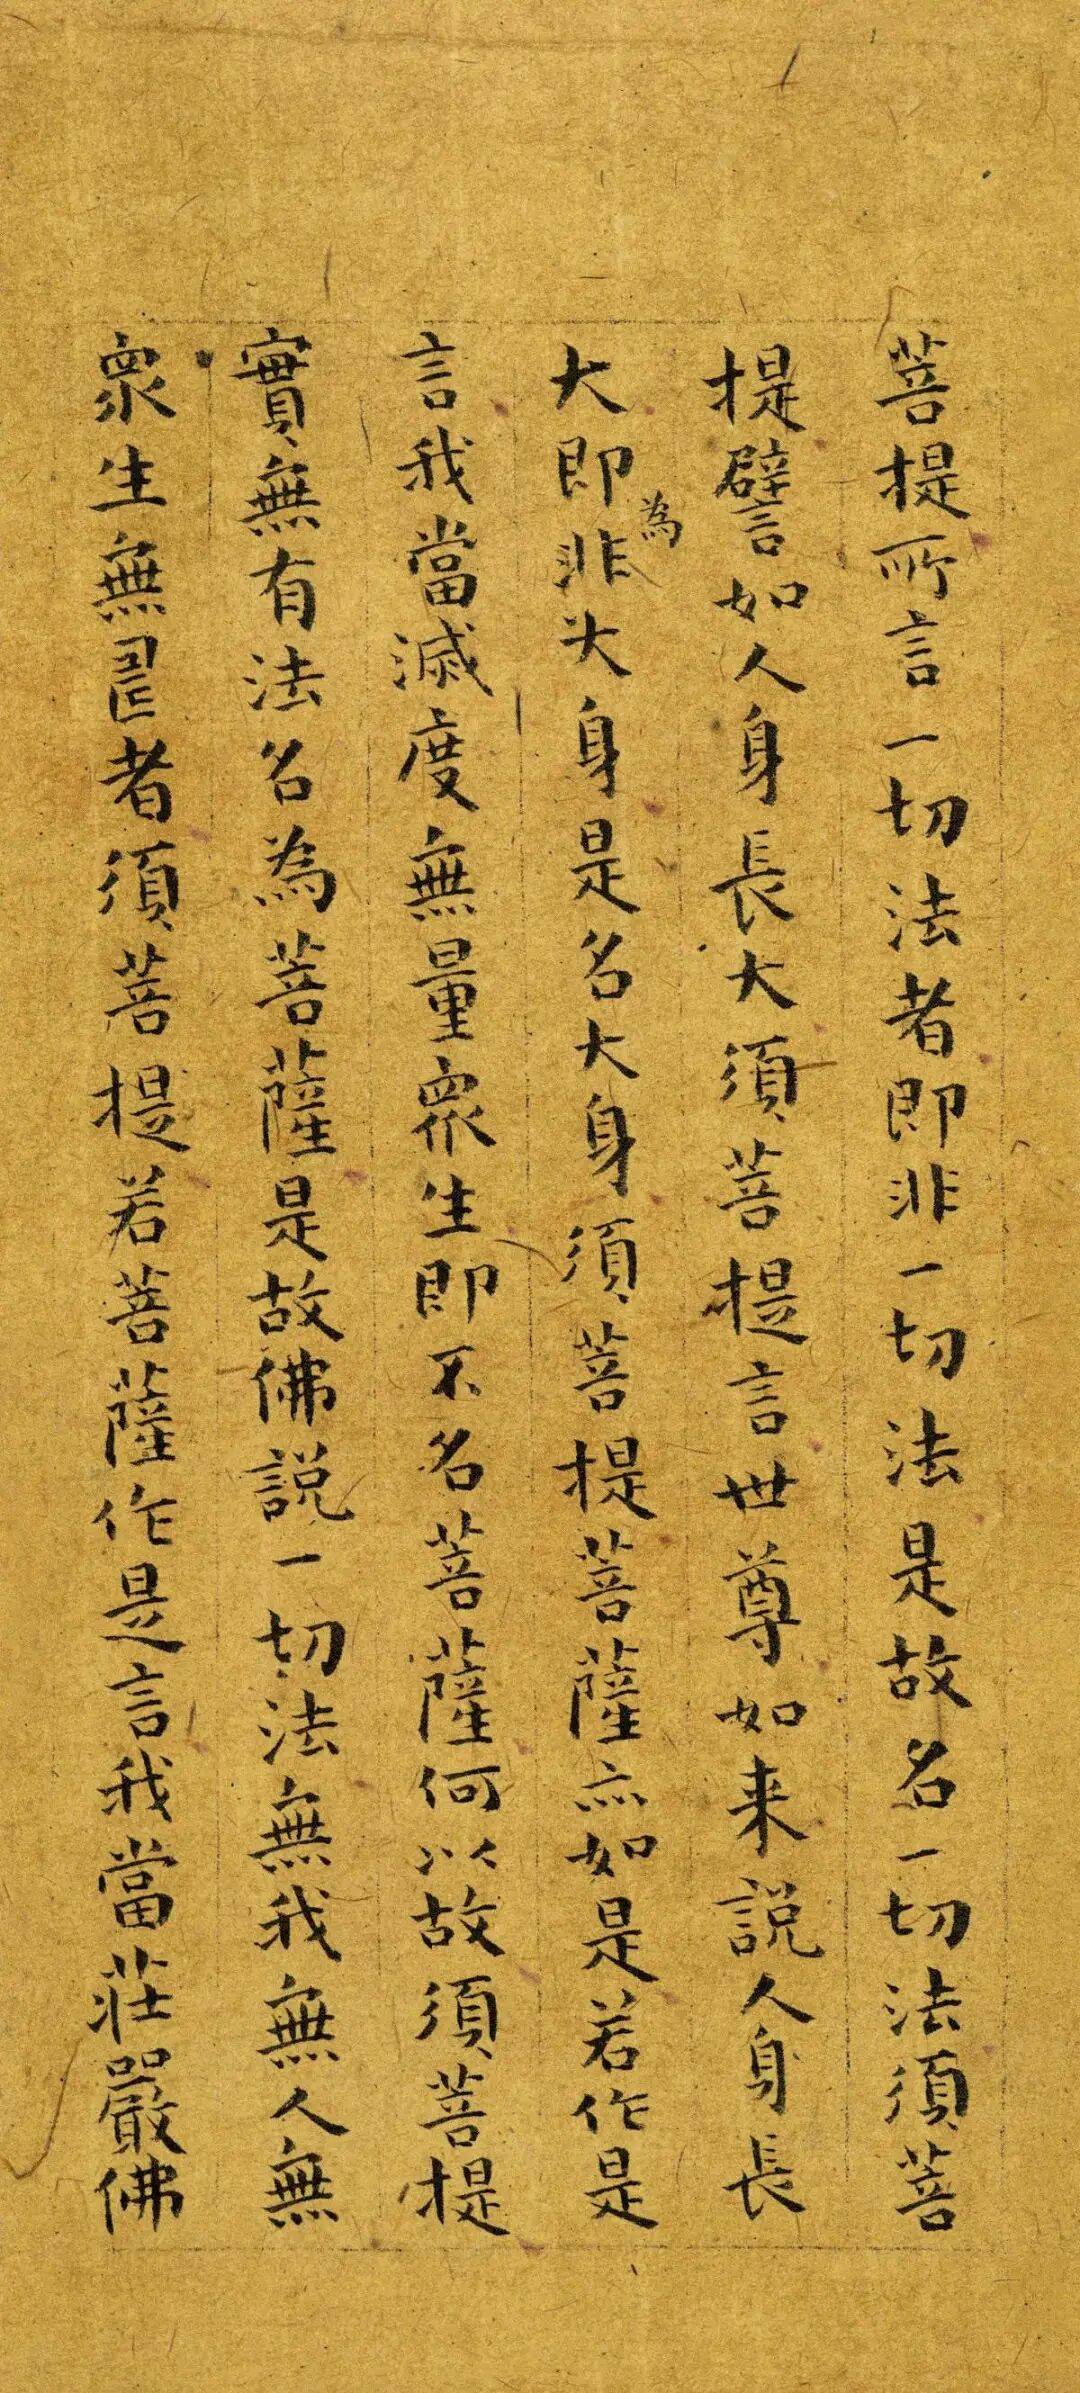 菩提所言一切法者即非一切法是故名一切法須菩
提譬如人身長大須菩提言世尊如来説人身長
大即為非大身是名大身須菩提菩薩亦如是若作是
言我當滅度無量衆生即不名菩薩何以故須菩提
實無有法名為菩薩是故佛説一切法無我無人無
衆生無者須菩提若菩薩作是言我當莊嚴佛